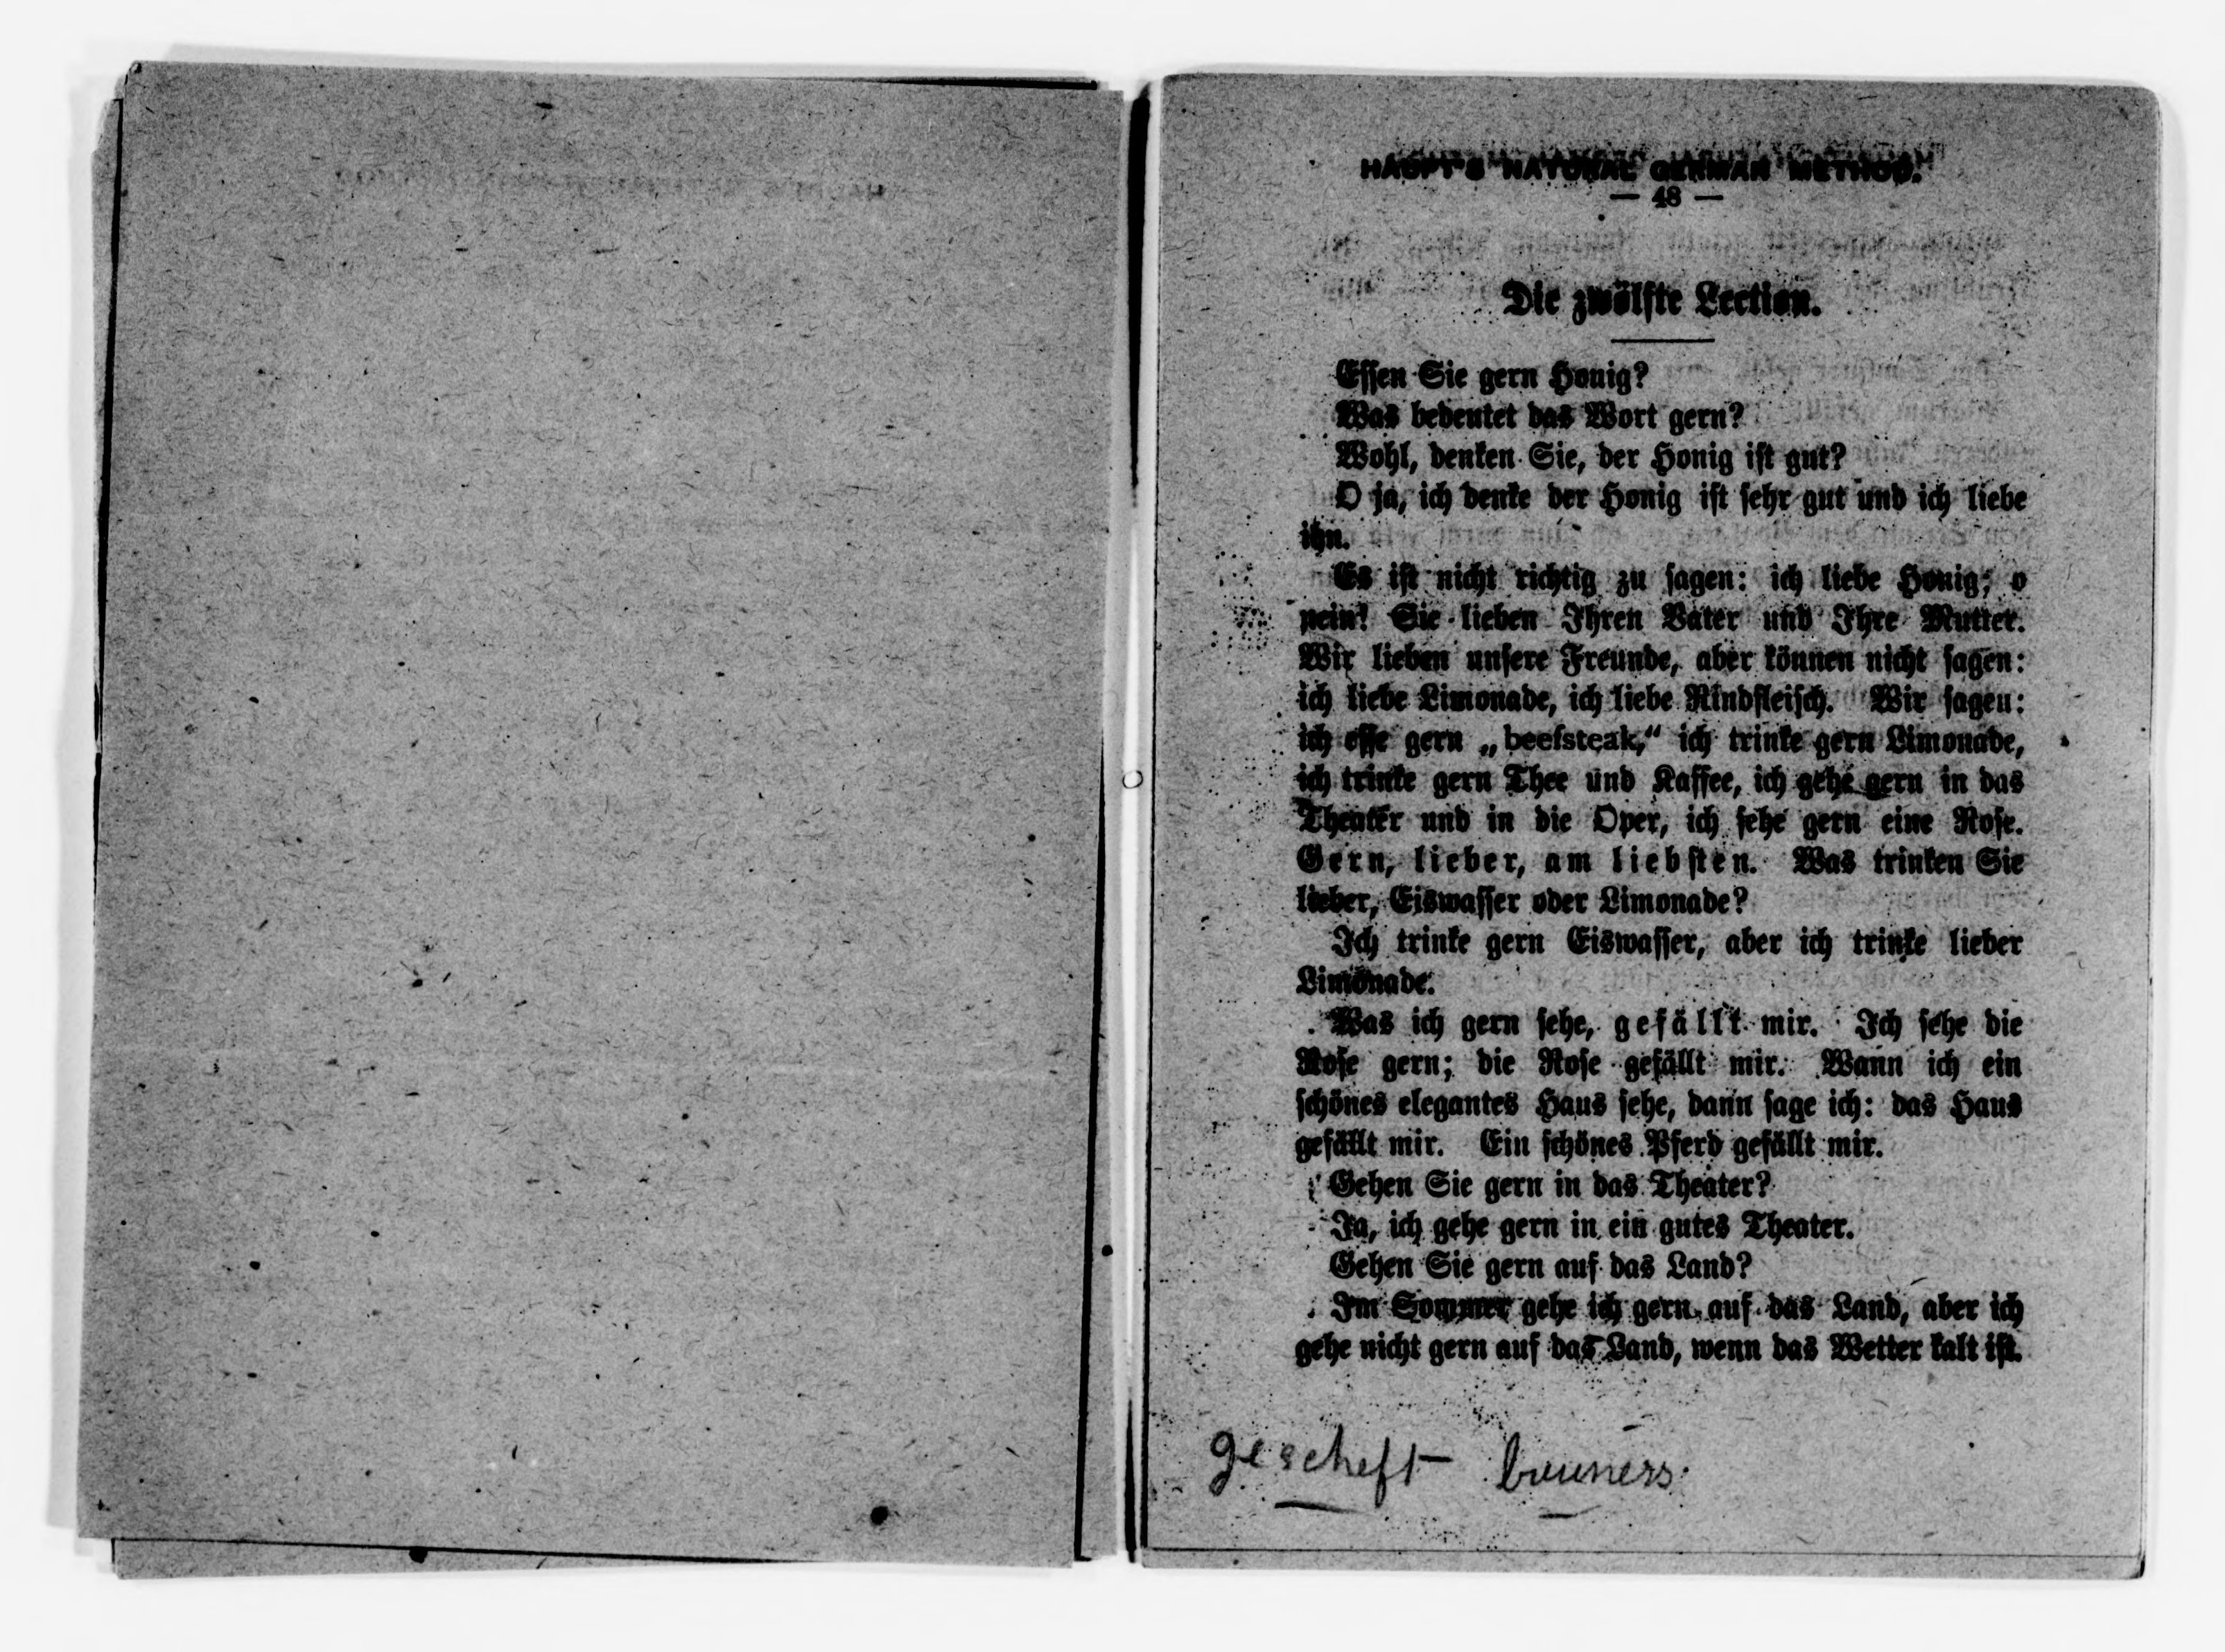 HAUPT'S NATURAL GERMAN METHOD.
— 48 —
Die zwölfte Lection.
Essen Sie gern Honig?
Was bedeutet das Wort gern?
Wohl, denken Sie, der Honig ist gut?
O ja, ich denke der Honig ist sehr gut und ich liebe
ihn.
Es ist nicht richtig zu sagen: ich liebe Honig; o
nein! Sie lieben Ihren Vater und Ihre Mutter.
Wir lieben unsere Freunde, aber können nicht sagen:
ich liebe Limonade, ich liebe Rindfleisch. Wir sagen:
ich esse gern „beefsteak,“ ich trinke gern Limonade,
ich trinke gern Thee und Kaffee, ich gehe gern in das
Theater und in die Oper, ich sehe gern eine Rose.
Gern, lieber, am liebsten. Was trinken Sie
lieber, Eiswasser oder Limonade?
Ich trinke gern Eiswasser, aber ich trinke lieber
Limonade.
Was ich gern sehe, gefällt mir. Ich sehe die
Rose gern; die Rose gefällt mir. Wann ich ein
schönes elegantes Haus sehe, dann sage ich: das Haus
gefällt mir. Ein schönes Pferd gefällt mir.
Gehen Sie gern in das Theater?
Ja, ich gehe gern in ein gutes Theater.
Gehen Sie gern auf das Land?
Im Sommer gehe ich gern auf das Land, aber ich
gehe nicht gern auf das Land, wenn das Wetter kalt ist.
gescheft